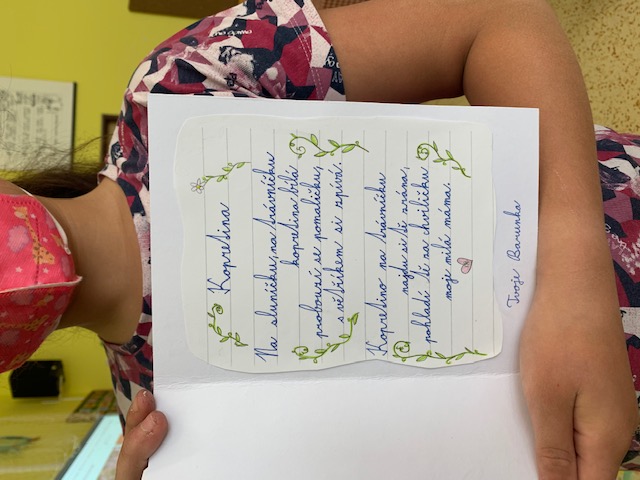 Kopretina
Na sluníčku, na trávníčku
kopretina bílá
probouzí se pomaličku,
s větříkem si zpívá.
Kopretino na trávníčku
najdu si tě zrána,
pohladí tě na chviličku
moje milá máma.
Tvoje Barunka